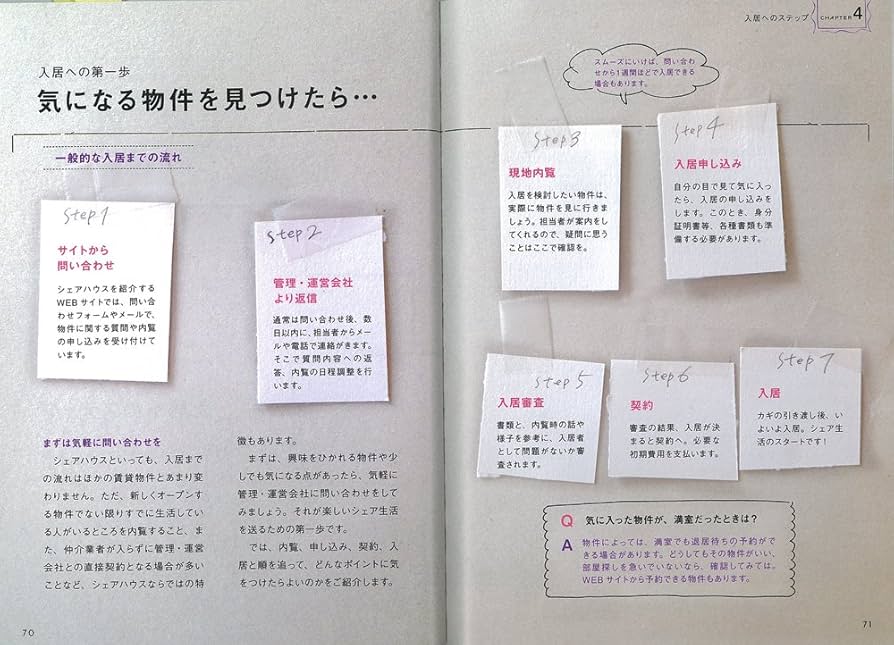 入居への第一歩
気になる物件を見つけたら…
一般的な入居までの流れ
Step 1
サイトから
問い合わせ
シェアハウスを紹介する
WEBサイトでは、問い合
わせフォームやメールで、
物件に関する質問や内覧
の申し込みを受け付けて
います。
Step 2
管理・運営会社
より返信
通常は問い合わせ後、数
日以内に、担当者からメー
ルや電話で連絡がきます。
そこで質問内容への返
答、内覧の日程調整を行
います。
まずは気軽に問い合わせを
シェアハウスといっても、入居まで
の流れはほかの賃貸物件とあまり変
わりません。ただ、新しくオープンす
る物件でない限りすでに生活してい
る人がいるところを内覧すること、ま
た、仲介業者が入らずに管理・運営
会社との直接契約となる場合が多い
ことなど、シェアハウスならではの特
徴もあります。
まずは、興味をひかれる物件や少
しでも気になる点があったら、気軽に
管理・運営会社に問い合わせをして
みましょう。それが楽しいシェア生活
を送るための第一歩です。
では、内覧、申し込み、契約、入
居と順を追って、どんなポイントに気
をつけたらよいのかをご紹介します。
70
入居へのステップ
CHAPTER 4
スムーズにいけば、問い合わ
せから1週間ほどで入居できる
場合もあります。
Step 3
現地内覧
入居を検討したい物件は、
実際に物件を見に行きま
しょう。担当者が案内をし
てくれるので、疑問に思う
ことはここで確認を。
Step 4
入居申し込み
自分の目で見て気に入っ
たら、入居の申し込みを
します。このとき、身分
証明書等、各種書類も準
備する必要があります。
Step 5
入居審査
書類と、内覧時の話や
様子を参考に、入居者
として問題がないか審
査されます。
Step 6
契約
審査の結果、入居が決
まると契約へ。必要な
初期費用を支払います。
Step 7
入居
カギの引き渡し後、い
よいよ入居。シェア生
活のスタートです！
Q 気に入った物件が、満室だったときは？
A 物件によっては、満室でも退居待ちの予約がで
きる場合があります。どうしてもその物件がいい、
部屋探しを急いでいないなら、確認してみては。
WEBサイトから予約できる物件もあります。
71